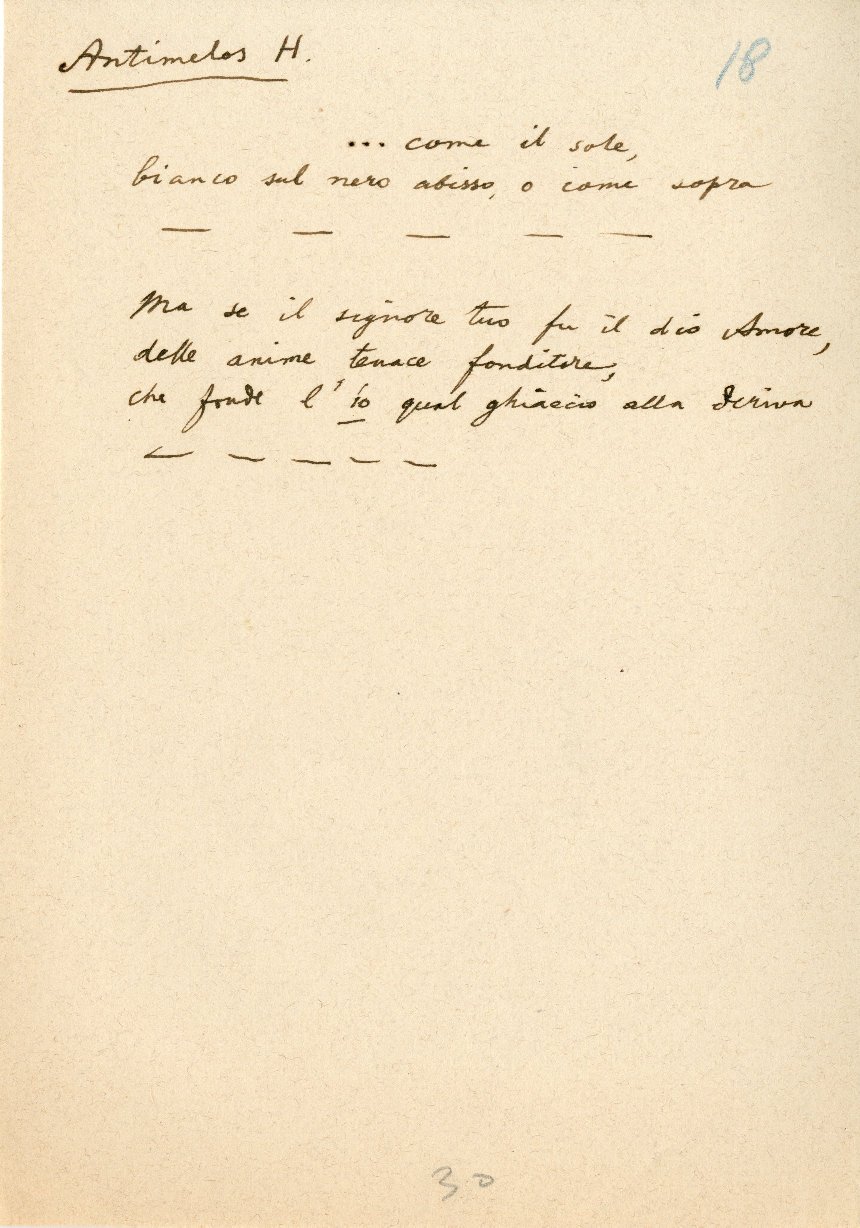 Antimelos H.
18
... come il sole,
bianco sul nero abisso, o come sopra
— — — — —
Ma se il signore tuo fu il dio Amore,
delle anime tenace fonditore,
che fonde l'io qual ghiaccio alla deriva
— — — — —
30